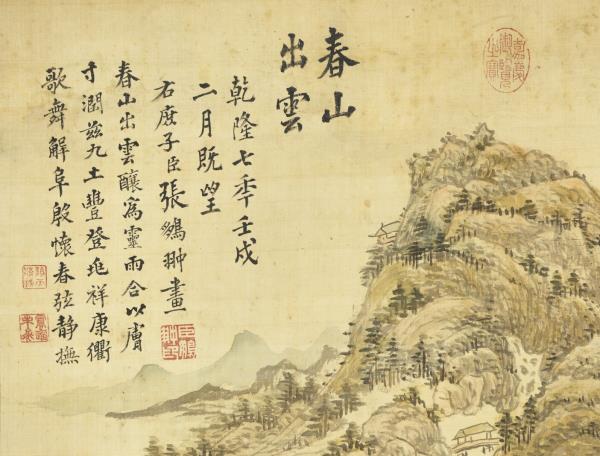 嘉慶御覽之寶
春山
出雲
乾隆七秊壬戌
二月既望
右庶子臣張鵬翀畫
春山出雲釀為靈雨合以膚
寸潤茲九土豐登兆祥康衢
歌舞解阜殷懷春弦靜撫